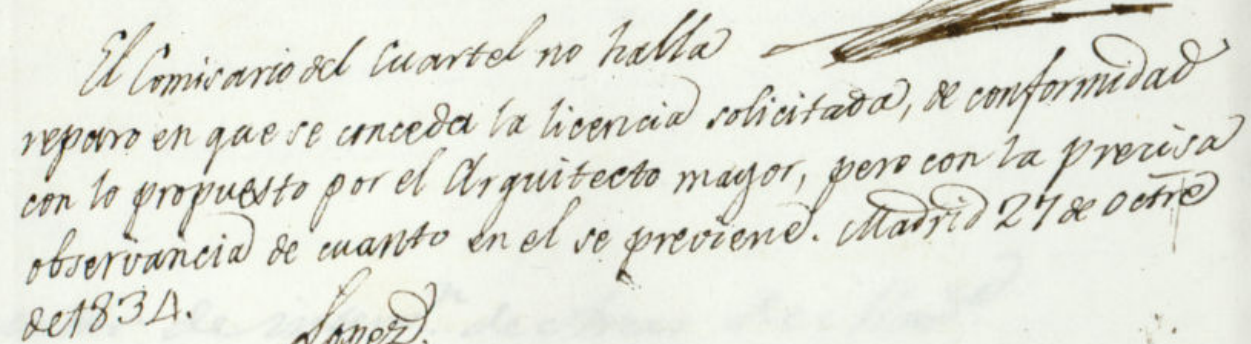 El Comisario del Cuartel no halla
reparo en que se conceda la licencia solicitada, de conformidad
con lo propuesto por el Arquitecto mayor, pero con la precisa
observancia de cuanto en el se previene. Madrid 27 de Octre
de 1834.
Lopez.